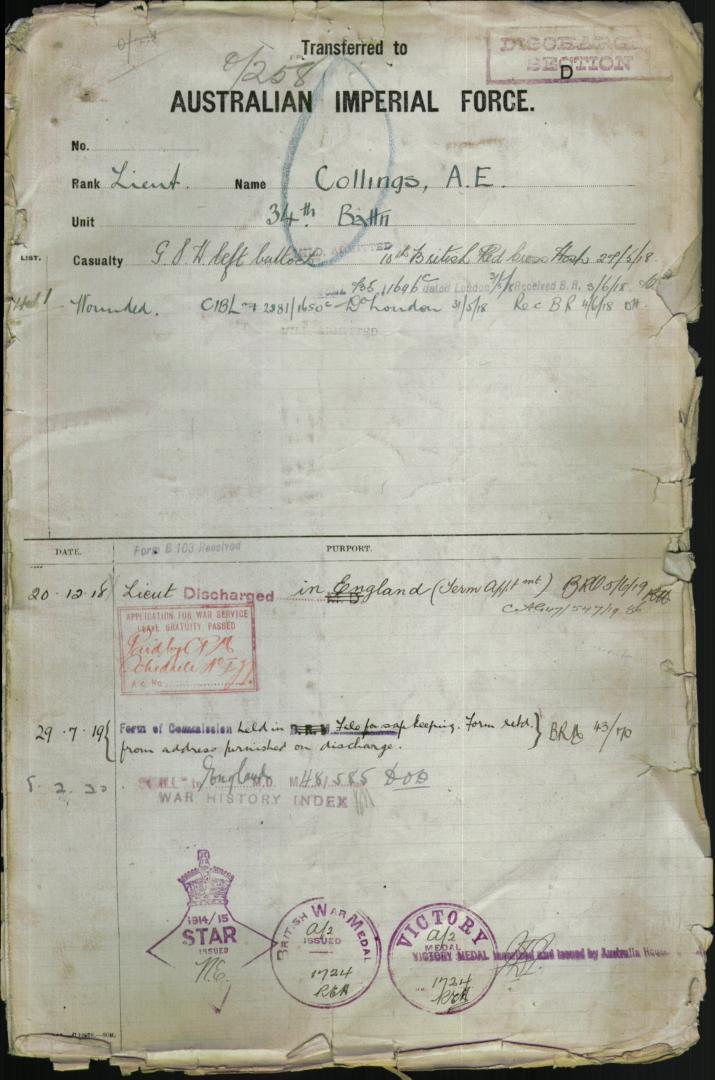 Transferred to
DISCHARGE
SECTION
D
0/258
AUSTRALIAN IMPERIAL FORCE.
No.
Rank Lieut. Name Collings, A.E.
Unit 34th Battn
LIST.
Casualty G.S.W. left buttock 10th British Red Cross Hosp. 29/5/18.
MILD. ADMITTED
dated London Received B.R. 3/6/18
Wounded. London 31/5/18 Rec BR 4/6/18
MILD ADMITTED
DATE. Form B 103 Received PURPORT.
20.12.18 Lieut Discharged in England (Term Appt mt) BRO 5/6/19
APPLICATION FOR WAR SERVICE
LEAVE GRATUITY PASSED
Paid by
Schedule
A.C. No.
29.7.19 { Form of Commission held in B.R.M File for safe keeping. Form retd. } BRO 43/70
from address furnished on discharge.
5.2.20 England M.D. M48,585 DOD
WAR HISTORY INDEX
1914/15
STAR
ISSUED
N.E.
BRITISH WAR MEDAL
A/2
ISSUED
1724
VICTORY
A/2
MEDAL
VICTORY MEDAL and issued by Australia House
1724